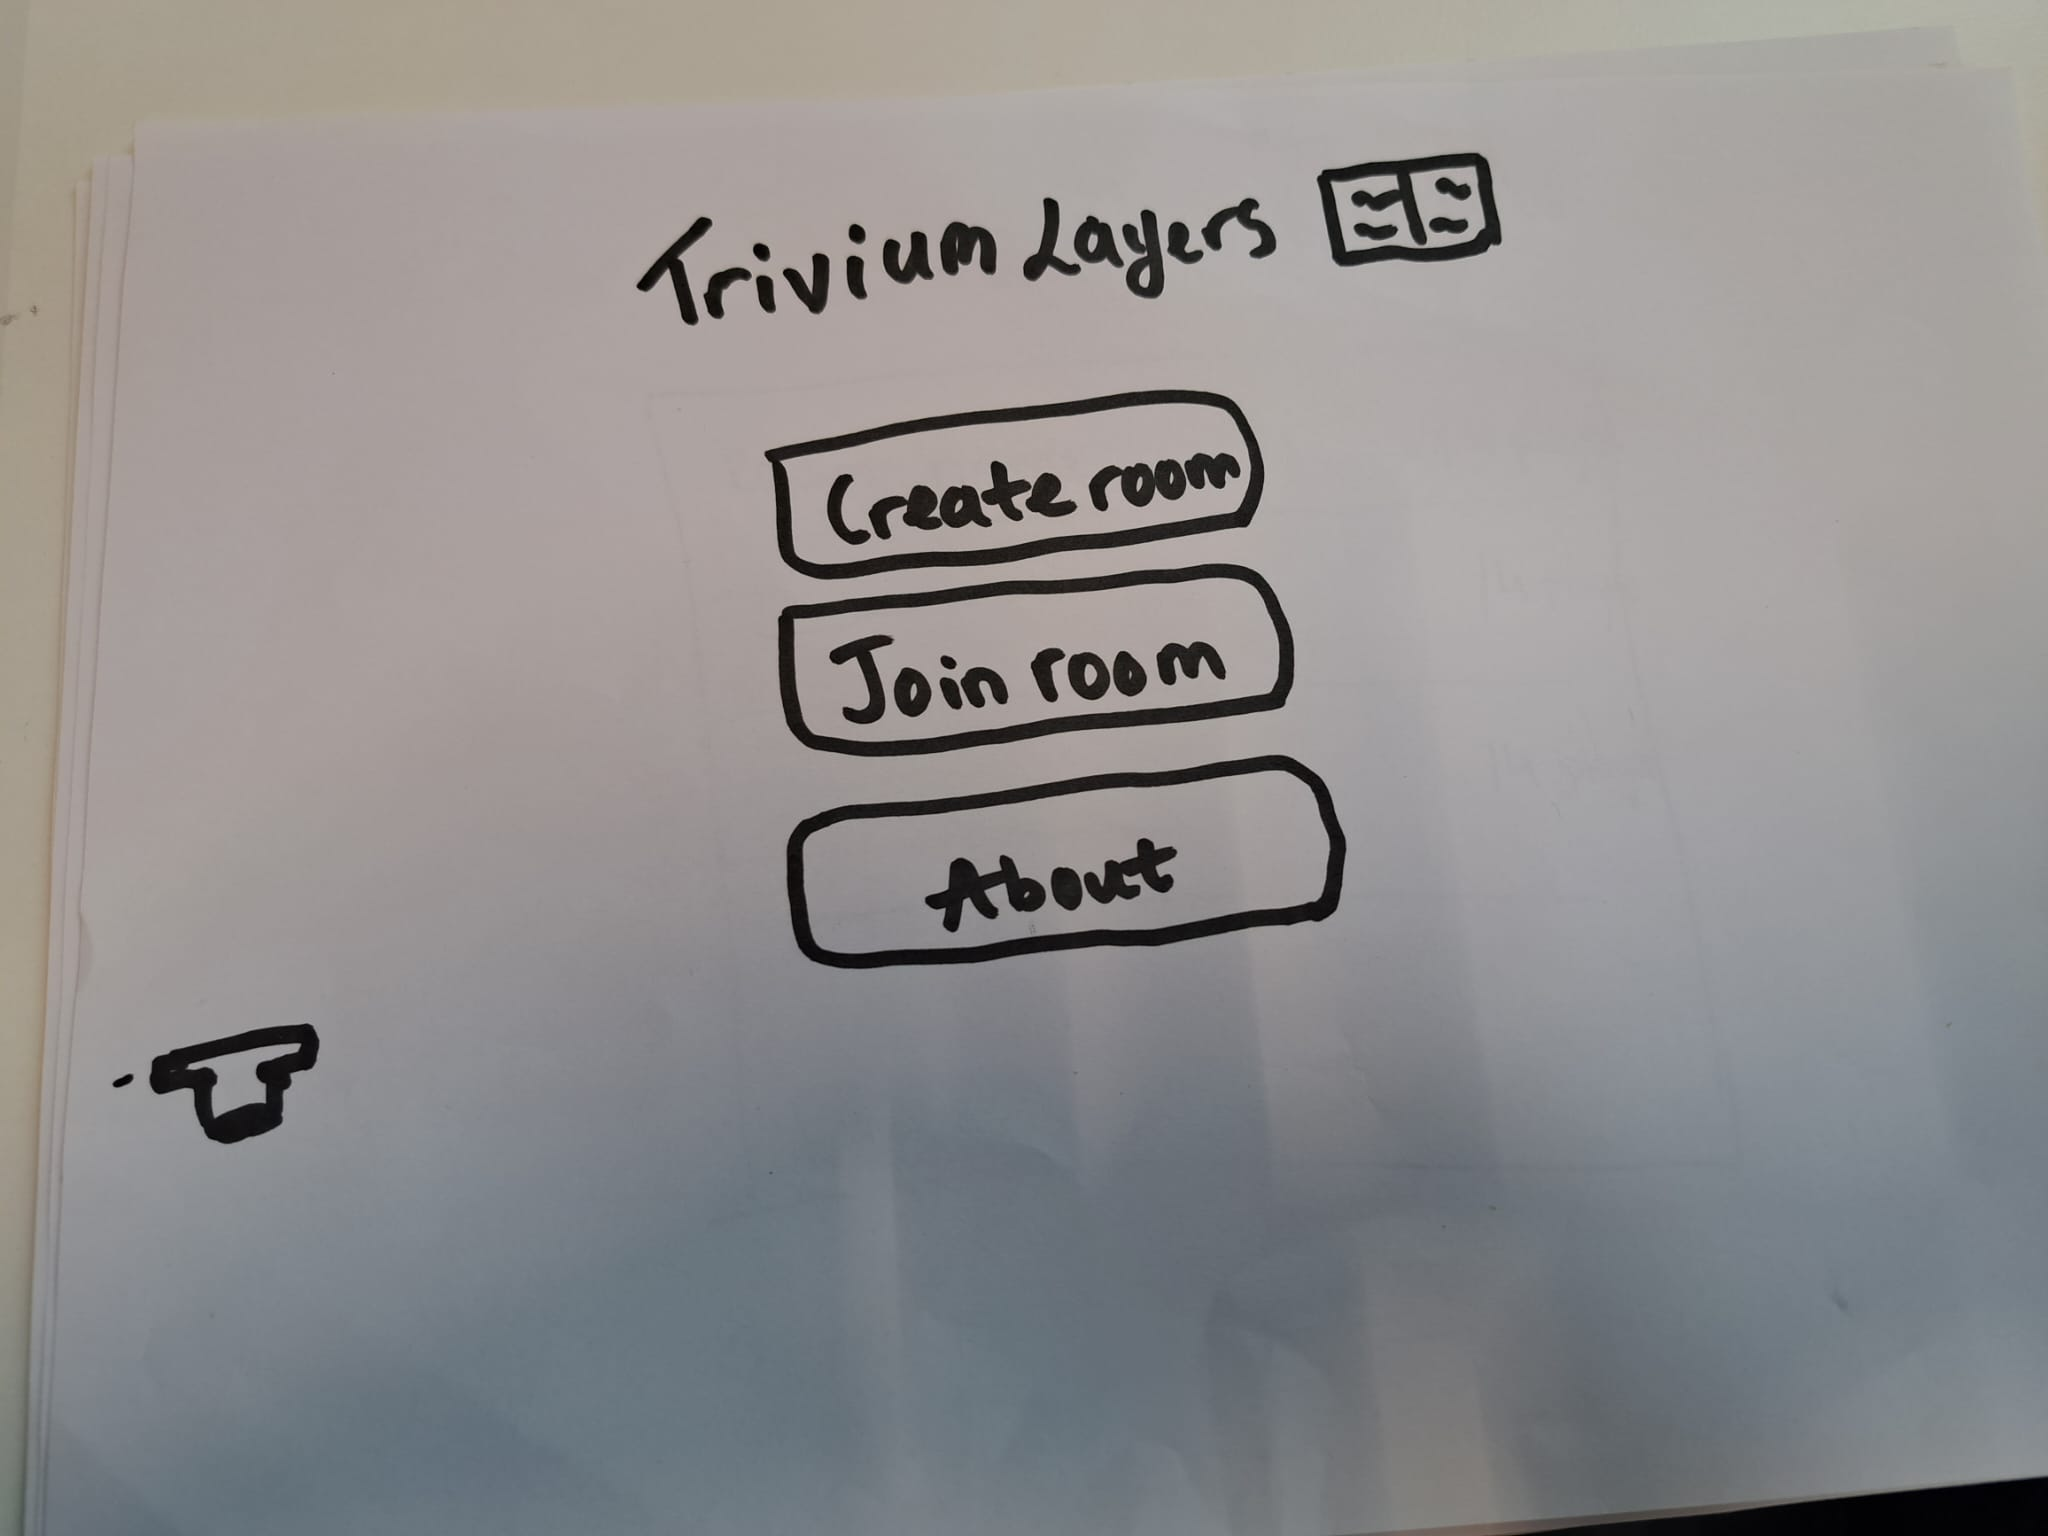 Trivium Layers
Create room
Join room
About